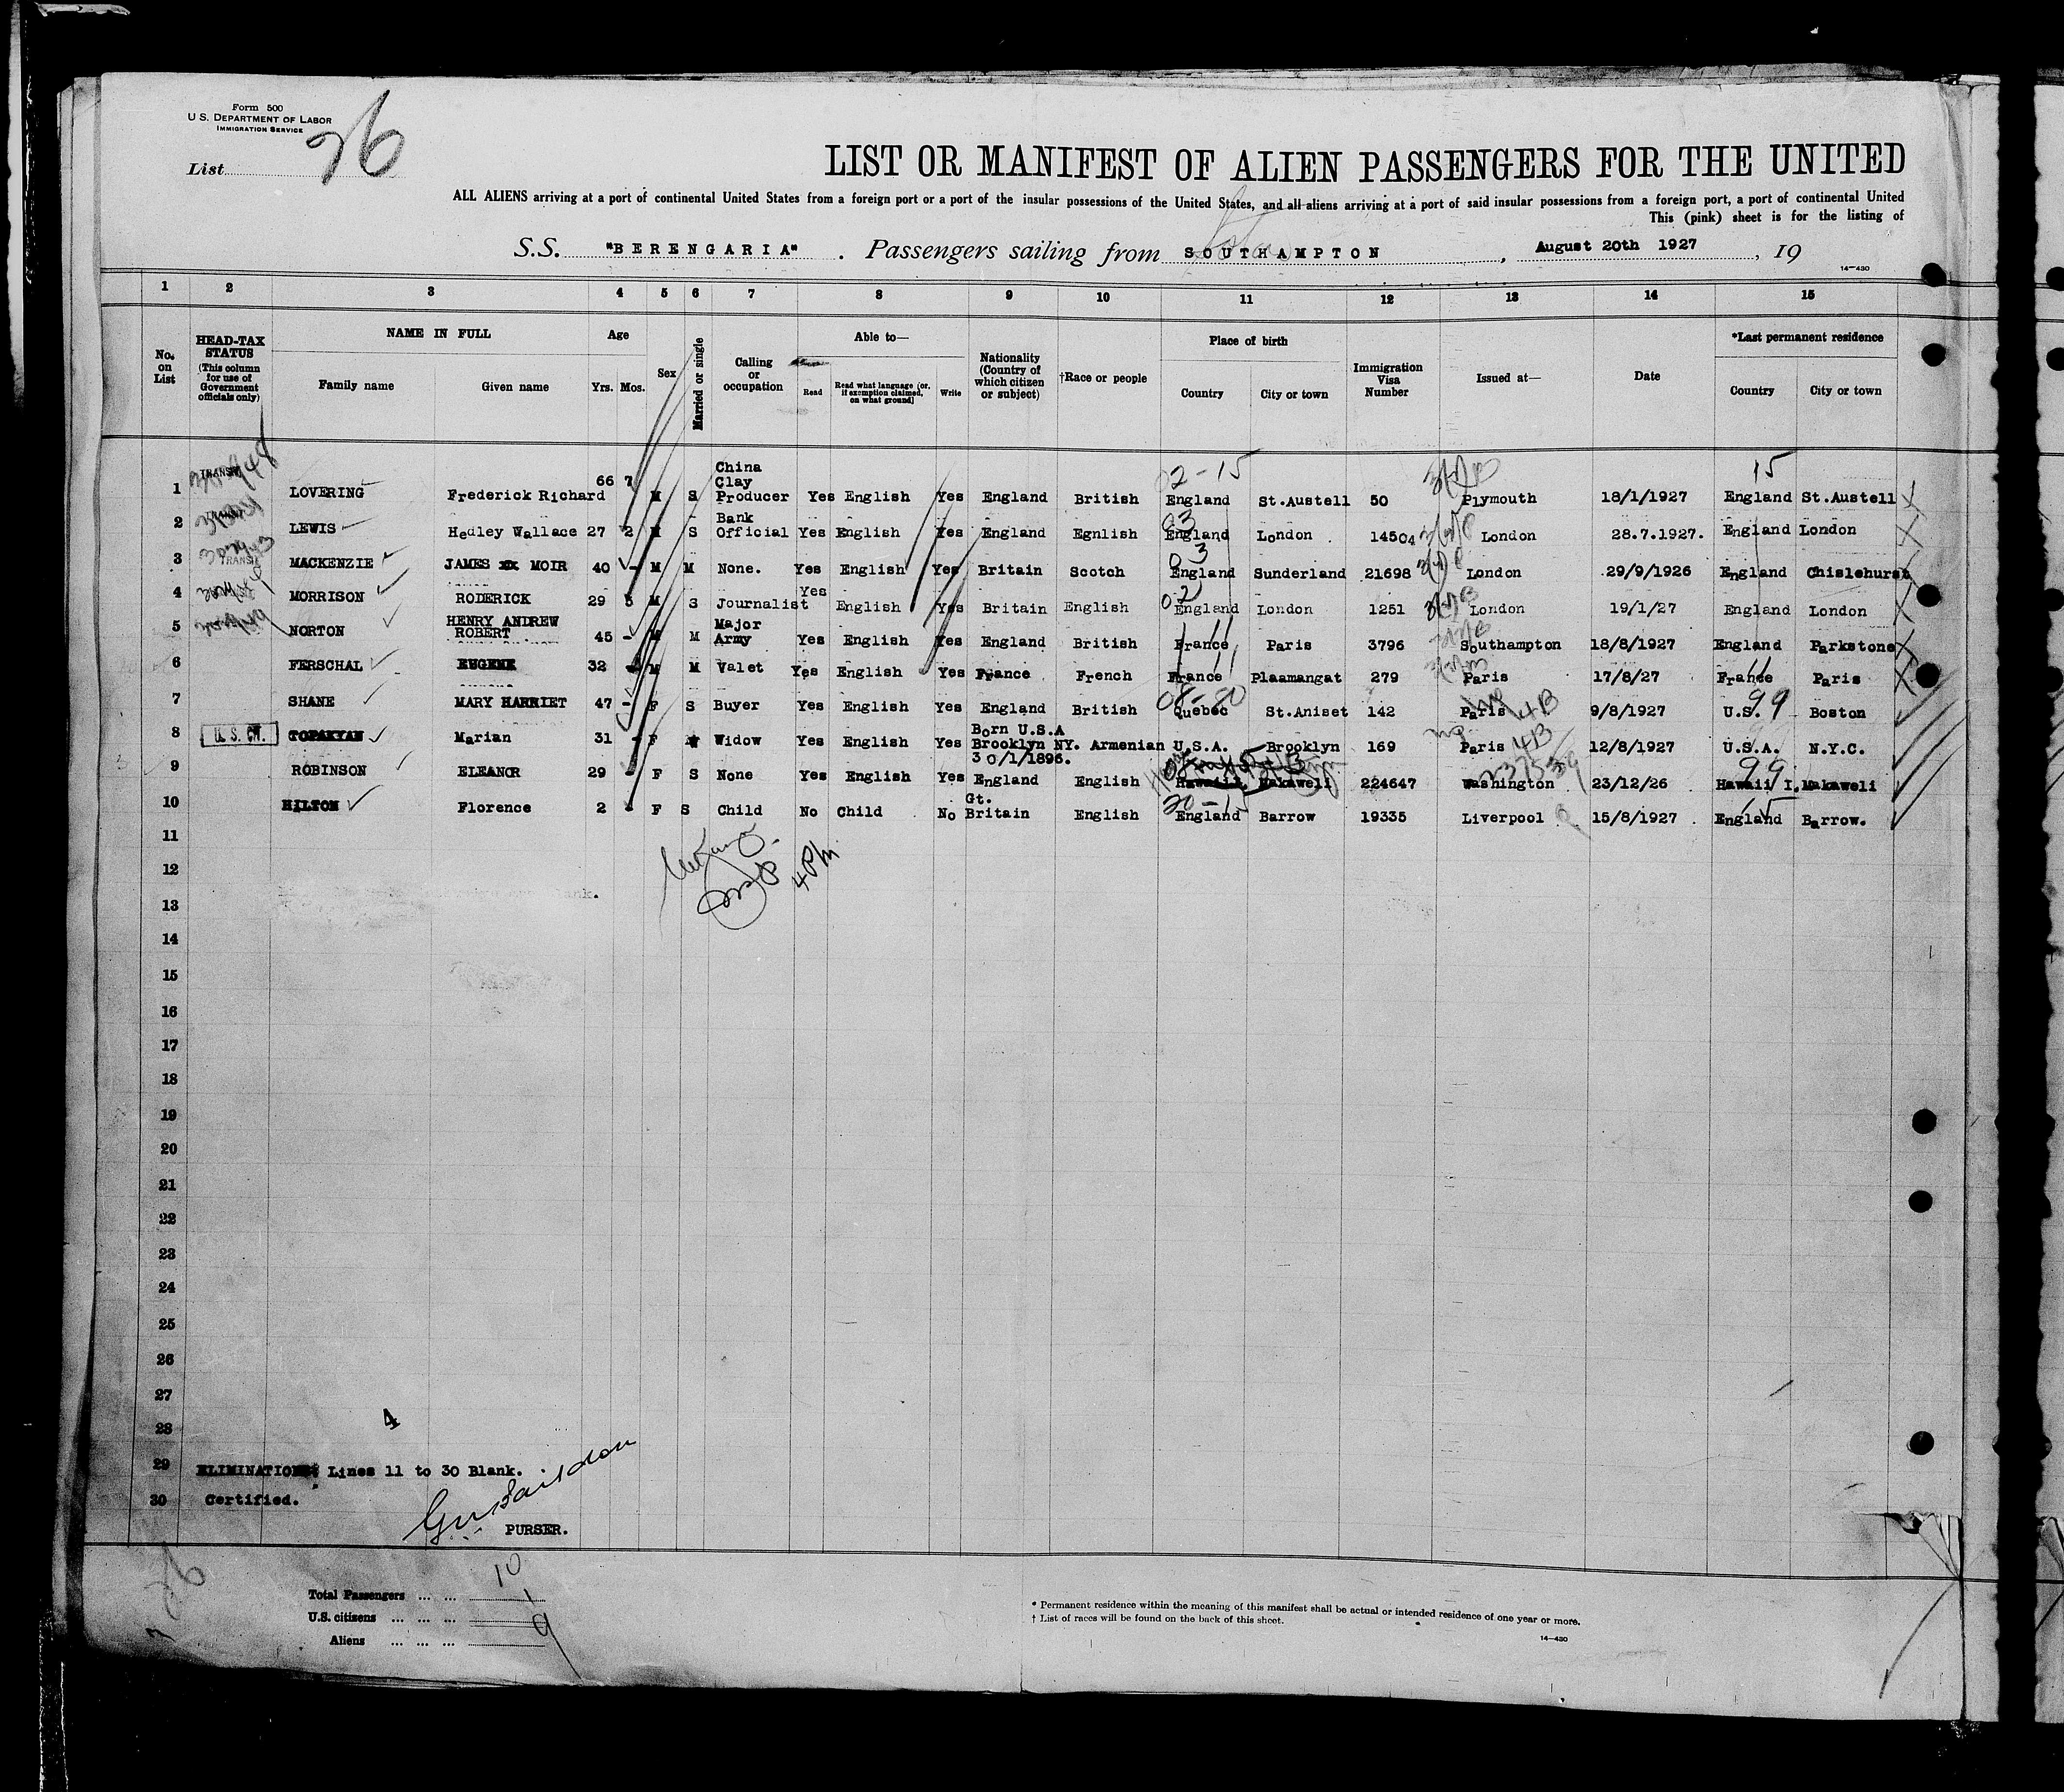 Form 500
U.S. DEPARTMENT OF LABOR
IMMIGRATION SERVICE
List 26
LIST OR MANIFEST OF ALIEN PASSENGERS FOR THE UNITED
ALL ALIENS arriving at a port of continental United States from a foreign port or a port of the insular possessions of the United States, and all aliens arriving at a port of said insular possessions from a foreign port, a port of continental United
This (pink) sheet is for the listing of
S.S. "BERENGARIA". Passengers sailing from SOUTHAMPTON, August 20th 1927, 19
14-430
1 2 3 4 5 6 7 8 9 10 11 12 13 14 15
No. on List
HEAD-TAX STATUS (This column for use of Government officials only)
NAME IN FULL
Family name Given name
Age
Yrs. Mos.
Sex
Married or single
Calling or occupation
Able to—
Read Read what language [or, if exemption claimed, on what ground] Write
Nationality (Country of which citizen or subject)
†Race or people
Place of birth
Country City or town
Immigration Visa Number
Issued at—
Date
*Last permanent residence
Country City or town
02-15 15
1 TRANSIT LOVERING Frederick Richard 66 7 M S China Clay Producer Yes English Yes England British England St.Austell 50 Plymouth 18/1/1927 England St.Austell X
03
2 LEWIS Hedley Wallace 27 2 M S Bank Official Yes English Yes England Egnlish England London 14504 London 28.7.1927. England London X
03
3 TRANSIT MACKENZIE JAMES MOIR 40 - M M None. Yes English Yes Britain Scotch England Sunderland 21698 London 29/9/1926 England Chislehurst
02
4 MORRISON RODERICK 29 5 M S Journalist Yes English Yes Britain English England London 1251 London 19/1/27 England London X
5 NORTON HENRY ANDREW ROBERT 45 - M M Major Army Yes English Yes England British France Paris 3796 Southampton 18/8/1927 England Parkstone X
6 FERSCHAL EUGENE 32 - M M Valet Yes English Yes France French France Plaamangat 279 Paris 17/8/27 France Paris X
7 SHANE MARY HARRIET 47 - F S Buyer Yes English Yes England British Quebec St.Aniset 142 Paris 4B 9/8/1927 U.S. 99 Boston
8 U.S. CIT. TOPAKYAN Marian 31 - F W Widow Yes English Yes Born U.S.A Brooklyn NY. 30/1/1896. Armenian U.S.A. Brooklyn 169 Paris 4B 12/8/1927 U.S.A. N.Y.C.
9 ROBINSON ELEANOR 29 - F S None Yes English Yes England English Hawaii Makaweli 224647 Washington 23/12/26 Hawaii I. Makaweli 99
10 HILTON Florence 2 - F S Child No Child No Gt. Britain English England Barrow 19335 Liverpool 15/8/1927 England Barrow.
11
12 4 PM
13
14
15
16
17
18
19
20
21
22
23
24
25
26
27
28 4
29 ELIMINATIONS: Lines 11 to 30 Blank.
30 Certified.
PURSER.
Total Passengers ... ... 10
U.S. citizens ... ... ... 1
Aliens ... ... ... 9
* Permanent residence within the meaning of this manifest shall be actual or intended residence of one year or more.
† List of races will be found on the back of this sheet.
14-430